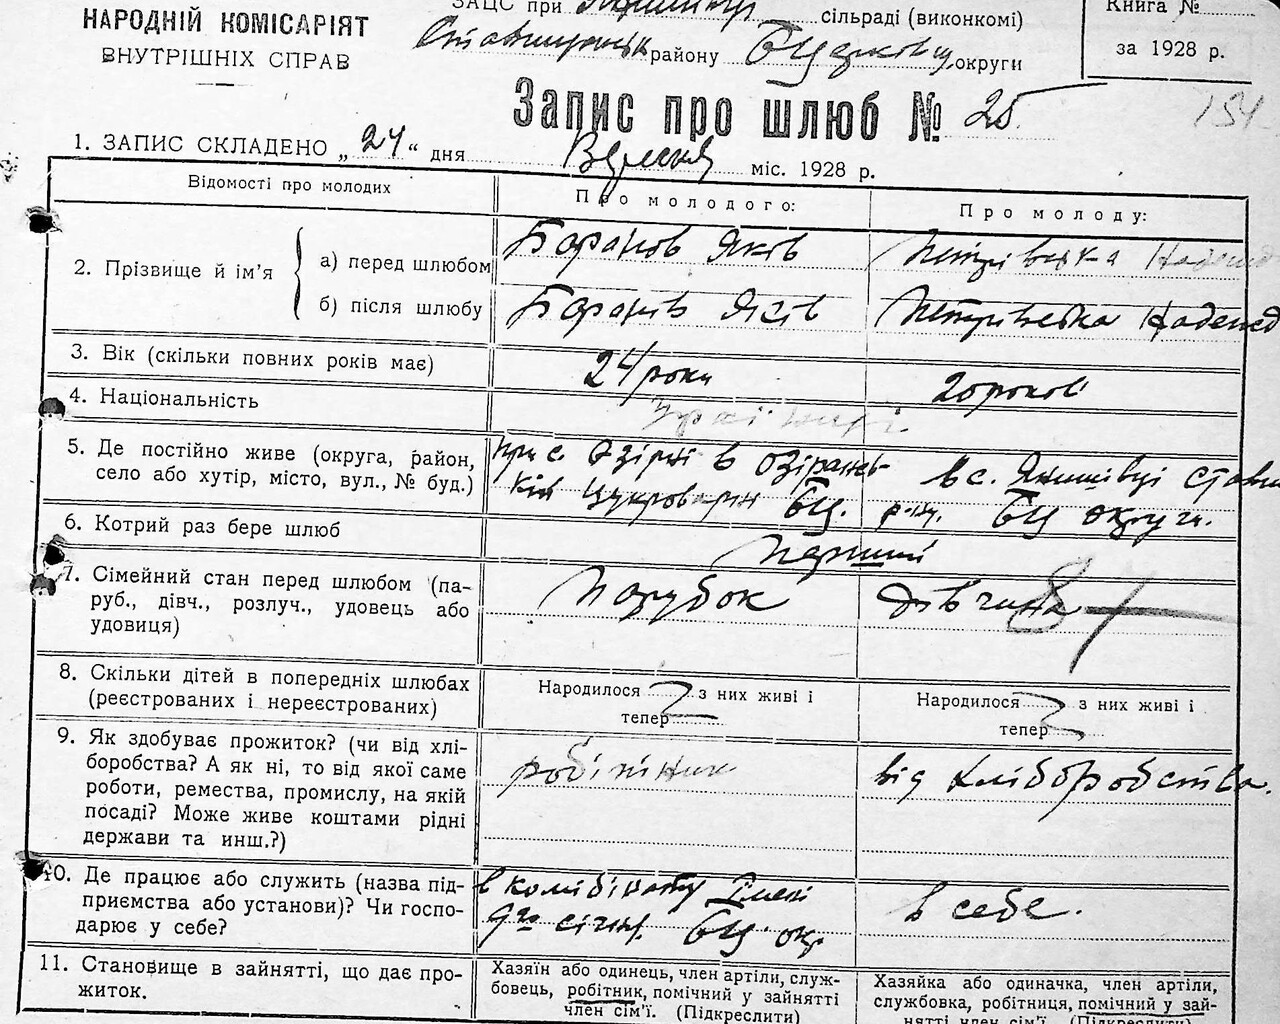 НАРОДНІЙ КОМІСАРІЯТ
ВНУТРІШНІХ СПРАВ
ЗАЦС при сільраді (виконкомі)
району БЦерковц. округи
Книга №
за 1928 р.
Запис про шлюб № 25
154
1. ЗАПИС СКЛАДЕНО „24“ дня Вересня міс. 1928 р.
Відомості про молодих
Про молодого:
Про молоду:
2. Прізвище й ім’я
а) перед шлюбом
Баранов Яків
б) після шлюбу
Баранів Яків
3. Вік (скільки повних років має)
24 роки
20 років
4. Національність
5. Де постійно живе (округа, район,
село або хутір, місто, вул., № буд.)
при с. Озірні в Озірянь-
кій Цукроварні БЦ.
в с. Янишівці Стави
р-ну. БЦ округи.
6. Котрий раз бере шлюб
Перший
7. Сімейний стан перед шлюбом (па-
руб., дівч., розлуч., удовець або
удовиця)
Парубок
дівчина
8. Скільки дітей в попередніх шлюбах
(реєстрованих і нереєстрованих)
Народилося з них живі і
тепер
Народилося з них живі і
тепер
9. Як здобуває прожиток? (чи від хлі-
боробства? А як ні, то від якої саме
роботи, ремества, промислу, на якій
посаді? Може живе коштами рідні
держави та инш.?)
робітник
від хліборобства.
10. Де працює або служить (назва під-
приємства або установи)? Чи госпо-
дарює у себе?
в комбінату Імені
9го січня. БЦ ок.
в себе.
11. Становище в зайнятті, що дає про-
житок.
Хазяїн або одинець, член артіли, служ-
бовець, робітник, помічний у зайнятті
член сім’ї. (Підкреслити)
Хазяйка або одиначка, член артіли,
службовка, робітниця, помічний у зай-
нятті член сім’ї. (Підкреслити)